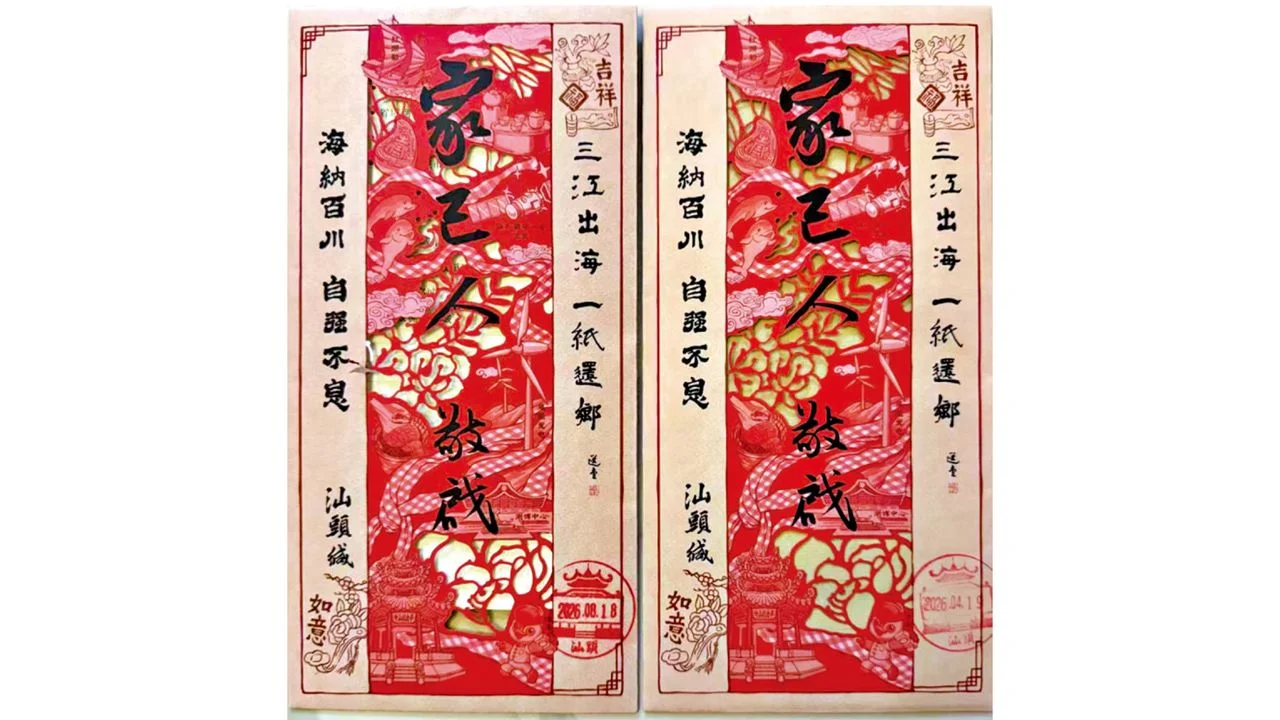 吉祥
三江出海 一紙還鄉
2026.08.18
汕頭
家己人 敬啟
海納百川 自强不息
汕頭緘
如意
吉祥
三江出海 一紙還鄉
2026.04.19
汕頭
家己人 敬啟
海納百川 自强不息
汕頭緘
如意